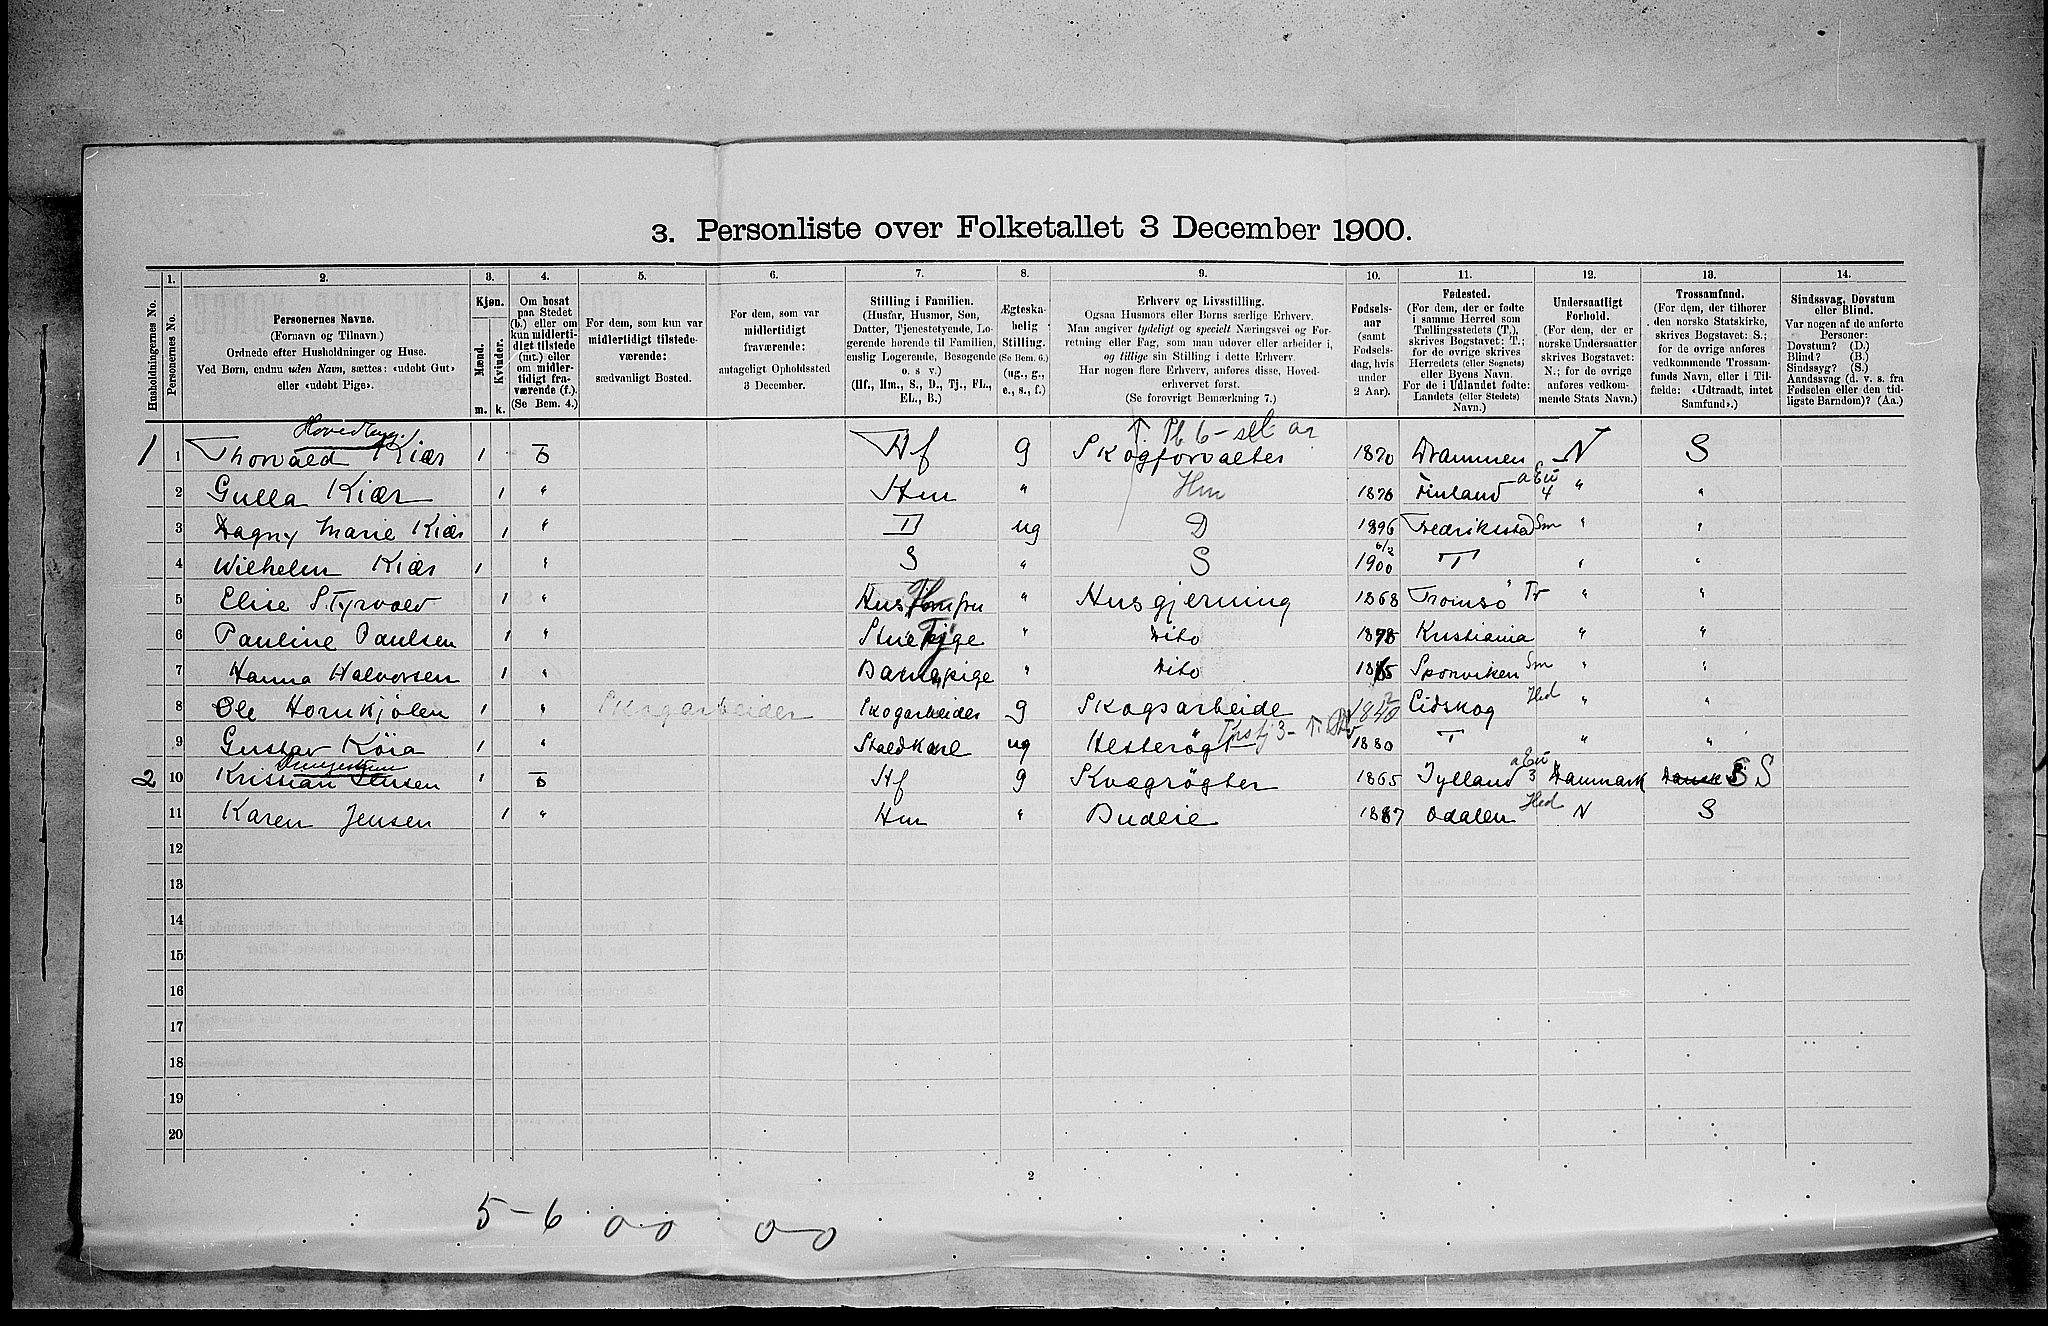 3. Personliste over Folketallet 3 December 1900.
1. 2. 3. 4. 5. 6. 7. 8. 9. 10. 11. 12. 13. 14.
Husholdningernes No.
Personernes No.
Personernes Navne.
(Fornavn og Tilnavn.)
Ordnede efter Husholdninger og Huse.
Ved Børn, endnu uden Navn, sættes: «udøbt Gut»
eller «udøbt Pige».
Kjøn.
Mænd.
Kvinder.
m. k.
Om bosat
paa Stedet
(b.) eller om
kun midlerti-
digt tilstede
(mt.) eller
om midler-
tidigt fra-
værende (f.).
(Se Bem. 4.)
For dem, som kun var
midlertidigt tilstede-
værende:
sædvanligt Bosted.
For dem, som var
midlertidigt
fraværende:
antageligt Opholdssted
3 December.
Stilling i Familien.
(Husfar, Husmor, Søn,
Datter, Tjenestetyende, Lo-
gerende hørende til Familien,
enslig Logerende, Besøgende
o. s. v.)
(Hf., Hm., S., D., Tj., FL.,
EL., B.)
Ægteska-
belig
Stilling.
(Se Bem. 6.)
(ug., g.,
e., s., f.)
Erhverv og Livsstilling.
Ogsaa Husmors eller Børns særlige Erhverv.
Man angiver tydeligt og specielt Næringsvei og For-
retning eller Fag, som man udøver eller arbeider i,
og tillige sin Stilling i dette Erhverv.
Har nogen flere Erhverv, anføres disse, Hoved-
erhvervet først.
(Se forøvrigt Bemærkning 7.)
Fødsels-
aar
(samt
Fødsels-
dag, hvis
under
2 Aar).
Fødested.
(For dem, der er fødte
i samme Herred som
Tællingsstedets (T.),
skrives Bogstavet: T.;
for de øvrige skrives
Herredets (eller Sognets)
eller Byens Navn.
For de i Udlandet fødte:
Landets (eller Stedets)
Navn.)
Undersaatligt
Forhold.
(For dem, der er
norske Undersaatter
skrives Bogstavet:
N.; for de øvrige
anføres vedkom-
mende Stats Navn.)
Trossamfund.
(For dem, der tilhører
den norske Statskirke,
skrives Bogstavet: S.;
for de øvrige anføres
vedkommende Trossam-
funds Navn, eller i Til-
fælde: «Udtraadt, intet
Samfund».)
Sindssvag, Døvstum
eller Blind.
Var nogen af de anførte
Personer:
Døvstum? (D.)
Blind? (B.)
Sindssyg? (S.)
Aandssvag (d. v. s. fra
Fødselen eller den tid-
ligste Barndom)? (Aa.)
Hovedbyg. Pb 6 - set ar
1 1 Thorvald Kiær 1 b Hf g Skogforvalter 1870 Drammen N S
2 Gulla Kiær 1 " Hm " Hm 1876 Finland aEu 4 " "
3 Dagny Marie Kiær 1 " D ug D 1896 Fredriksstad Sm " "
4 Wilhelm Kiær 1 " S " S 6/2 1900 T " "
5 Elise Styrvold 1 " Husjomfru " Husgjerning 1868 Tromsö Tr " "
6 Pauline Paulsen 1 " Stuepige Tj " Dito 1878 Kristiania " "
7 Hanna Halvorsen 1 " Barnepige " Dito 1865 Sponviken Sm " "
8 Ole Hornkjølen 1 " Skogarbeider Skogarbeider g Skogsarbeide 1840 Eidskog Hed " "
9 Gustav Köia 1 " Staldkarl ug Hesterøgt 1880 T " "
2 10 Kristian Jensen 1 b Hf g Kvægrøgter 1865 Jylland aEu 3 Danmark S S
11 Karen Jensen 1 " Hm " Budeie 1887 Odalen Hed N S
12
13
14
15
16
17
18
19
20
2
5-6 0-0 0-0